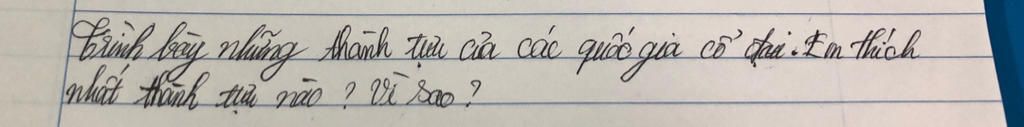 Trình bày những thành tựu của các quốc gia cổ đại. Em thích
nhất thành tựu nào? Vì sao?